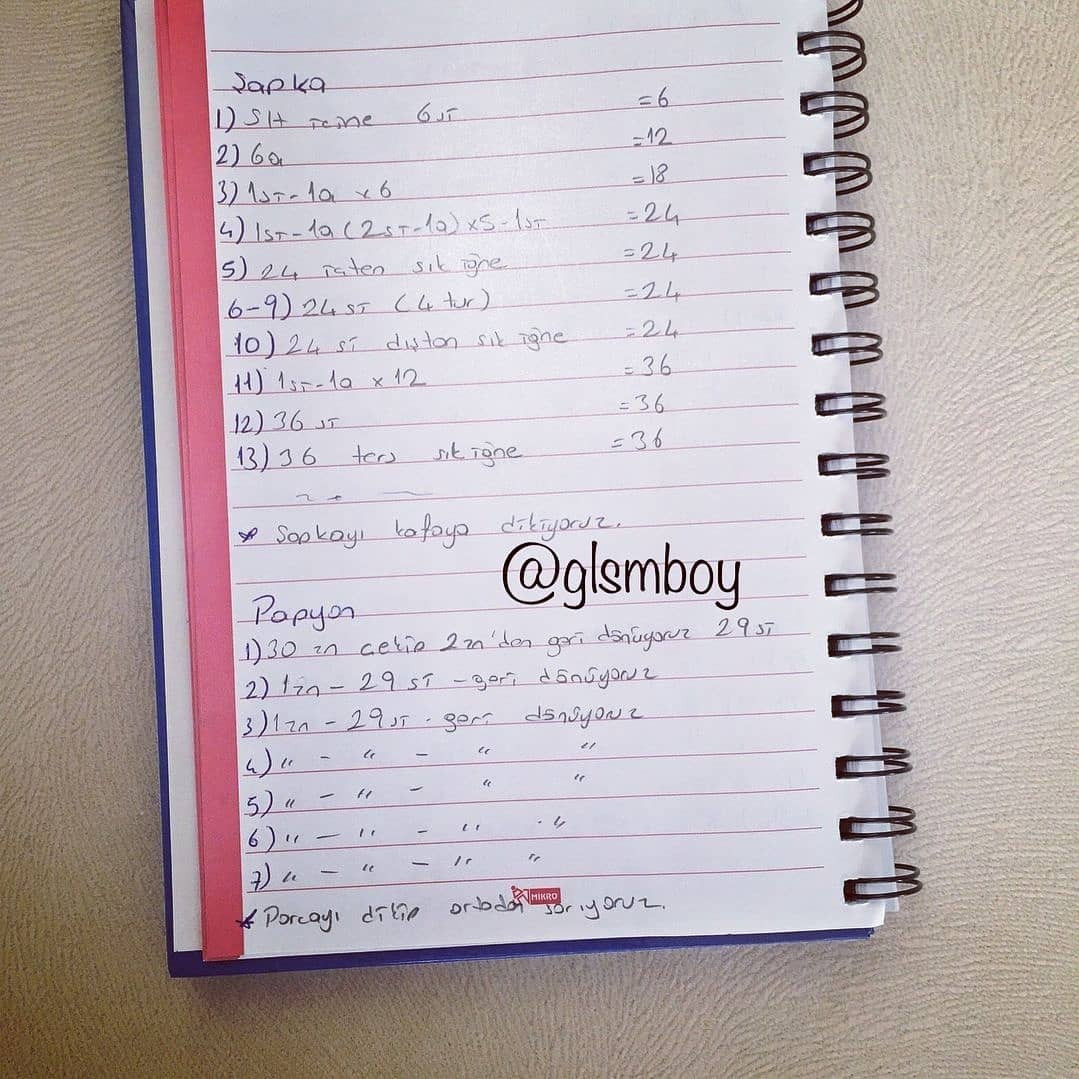 Şapka
1) SH içine 6sı =6
2) 6a =12
3) 1sı-1a x6 =18
4) 1sı-1a (2sı-1a)x5-1sı =24
5) 24 içten sık iğne =24
6-9) 24 sı (4 tur) =24
10) 24 sı dıştan sık iğne =24
11) 1sı-1a x 12 =36
12) 36 sı =36
13) 36 ters sık iğne =36
* Şapkayı kafaya dikiyoruz.
@glsmboy
Papyon
1) 30 zn çekip 2zn'den geri dönüyoruz 29sı
2) 1zn - 29 sı - geri dönüyoruz
3) 1zn - 29sı - geri dönüyoruz
4) " - " - " "
5) " - " - " "
6) " - " - " - "
7) " - " - " "
* Parçayı dikip ortadan sarıyoruz.
MİKRO